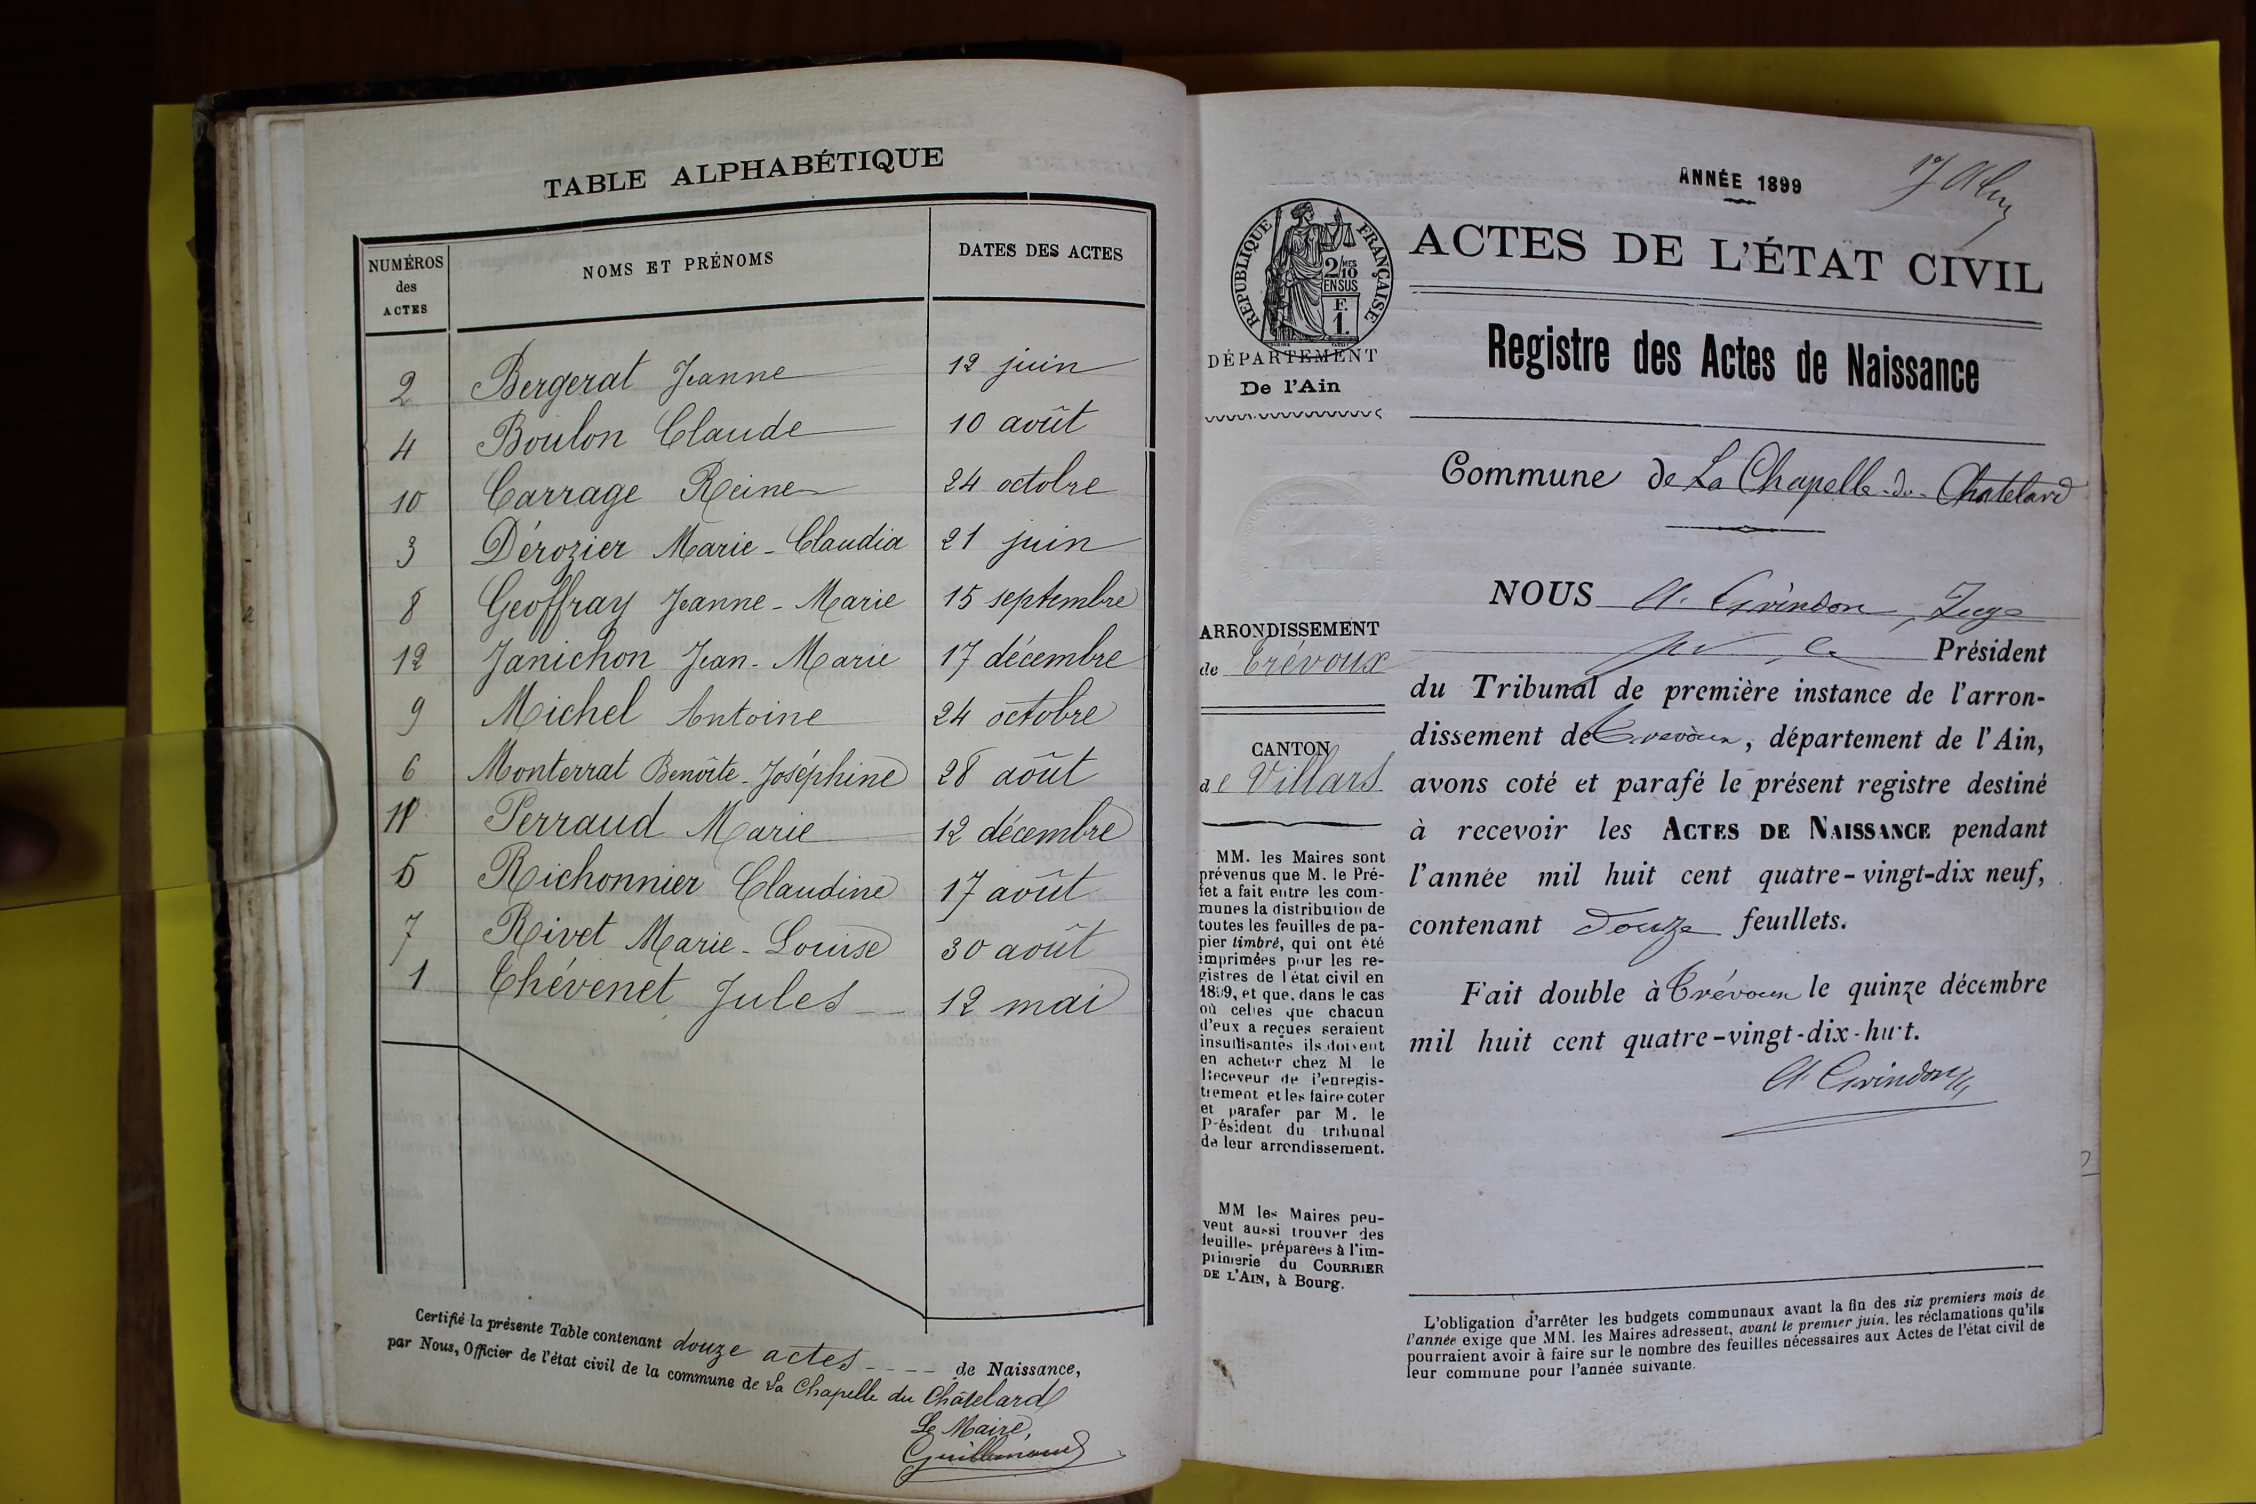 TABLE ALPHABÉTIQUE
NUMÉROS des ACTES
NOMS ET PRÉNOMS
DATES DES ACTES
2 Bergerat Jeanne 12 juin
4 Boulon Claude 10 août
10 Carrage Reine 24 octobre
3 Dérozier Marie-Claudia 21 juin
8 Geoffray Jeanne-Marie 15 septembre
12 Janichon Jean-Marie 17 décembre
9 Michel Antoine 24 octobre
6 Monterrat Benoîte-Joséphine 28 août
11 Perraud Marie 12 décembre
5 Richonnier Claudine 17 août
7 Rivet Marie-Louise 30 août
1 Thévenet Jules 12 mai
Certifié la présente Table contenant douze actes de Naissance,
par Nous, Officier de l'état civil de la commune de La Chapelle du Châtelard
Le Maire,
ANNÉE 1899
RÉPUBLIQUE FRANÇAISE
2/10 MES
EN SUS
F.
1.
ACTES DE L'ÉTAT CIVIL
DÉPARTEMENT
De l'Ain
Registre des Actes de Naissance
Commune de La Chapelle-du-Chatelard
ARRONDISSEMENT
de Trévoux
CANTON
de Villars
MM. les Maires sont
prévenus que M. le Pré-
fet a fait entre les com-
munes la distribution de
toutes les feuilles de pa-
pier timbré, qui ont été
imprimées pour les re-
gistres de l'état civil en
1899, et que, dans le cas
où celles que chacun
d'eux a reçues seraient
insuffisantes ils doivent
en acheter chez M le
Receveur de l'enregis-
trement et les faire coter
et parafer par M. le
Président du tribunal
de leur arrondissement.
MM les Maires peu-
vent aussi trouver des
feuilles préparées à l'im-
primerie du COURRIER
DE L'AIN, à Bourg.
NOUS A. Grindon, Juge
Président
du Tribunal de première instance de l'arron-
dissement de Trévoux, département de l'Ain,
avons coté et parafé le présent registre destiné
à recevoir les ACTES DE NAISSANCE pendant
l'année mil huit cent quatre-vingt-dix neuf,
contenant douze feuillets.
Fait double à Trévoux le quinze décembre
mil huit cent quatre-vingt-dix-huit.
A. Grindon
L'obligation d'arrêter les budgets communaux avant la fin des six premiers mois de
l'année exige que MM. les Maires adressent, avant le premier juin, les réclamations qu'ils
pourraient avoir à faire sur le nombre des feuilles nécessaires aux Actes de l'état civil de
leur commune pour l'année suivante.